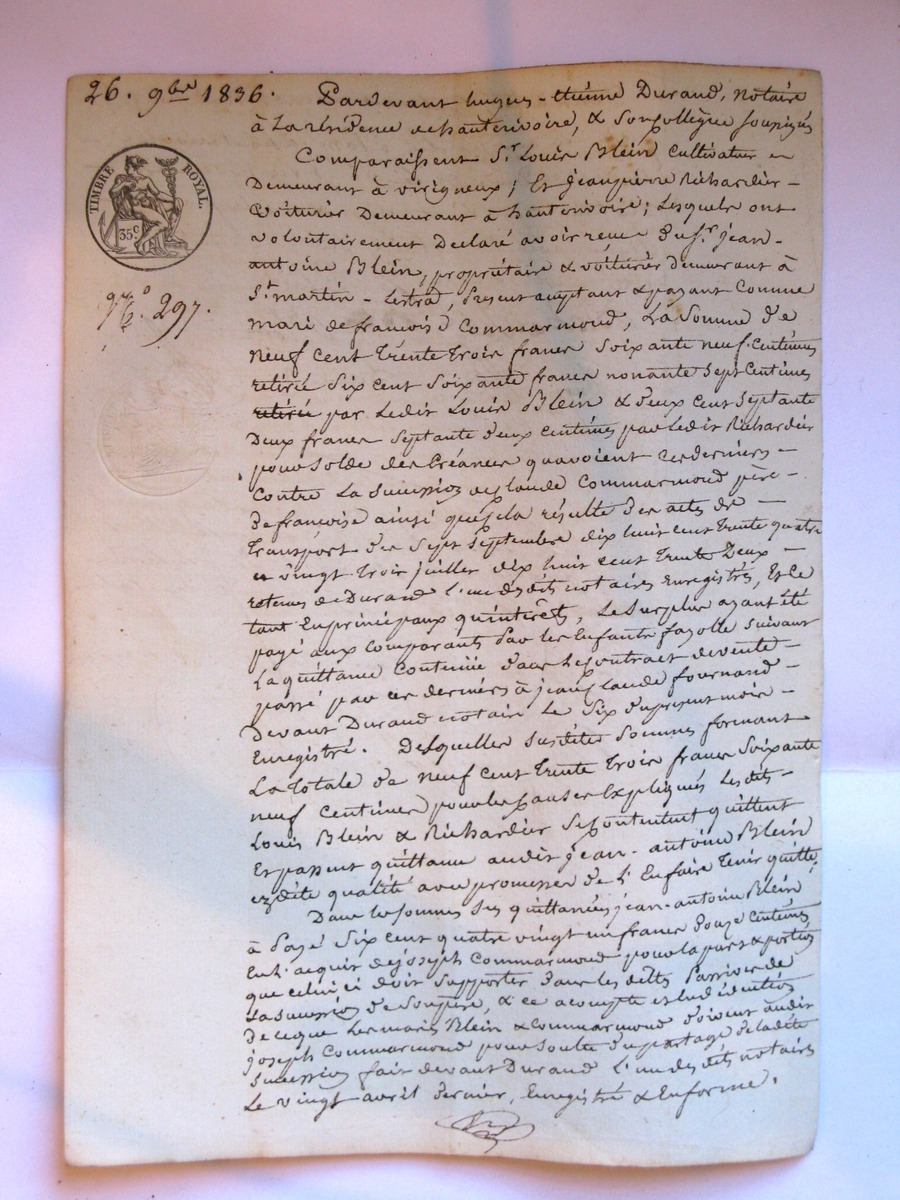 26. 9bre 1836.
TIMBRE ROYAL.
35c
No. 297.
Pardevant hugues-étienne Durand, Notaire
à La résidence de hauterivoire, & Son Collègue soussignés
Comparaissent Sr. Louis Blein Cultivateur
Demeurant à virigneux; Et jean pierre Richardier-
Voiturier Demeurant à hauterivoire; Lesquels ont
volontairement Declaré avoir reçu du Sr. jean-
antoine Blein, propriétaire & voiturier demeurant à
St. martin-Lestrad, present acceptant & payant Comme
mari de françoise Commarmond, La Somme De
neuf cent trente trois francs Soixante neuf Centimes
retirée Six cent Soixante francs nonante Sept Centimes
retirée par Ledit Louis Blein & deux cent Septante
Deux francs Septante deux centimes par Ledit Richardier
pour Solde des Créances qu'avoient ces derniers-
Contre La Succession de Claude Commarmond père-
de françoise ainsi que cela résulte des actes de-
transport des Sept Septembre dix huit cent trente quatre
et vingt trois juillet dix huit cent trente Deux-
retenus de Durand l'un desdits notaires Enregistrés, Et Ce
tant En principaux qu'intérêts, Le Surplus ayant été
payé aux Comparants Par les Enfants fayolle suivant
La quittance Contenue dans le Contract de vente-
passé par ces derniers à jean Claude fournand-
Devant Durand notaire Le Six du present mois-
Enregistré. Desquelles Susdites Sommes formant
La totale de neuf cent trente trois francs Soixante
neuf Centimes pour les causes Expliquées Lesdits-
Louis Blein & Richardier se contentent quittent
Et passent quittance audit jean-antoine Blein
ezdite qualité avec promesse de L'En faire tenir quitte;
Dans les sommes Sus quittancées jean-antoine Blein
à Payé Six cent quatre vingt un francs douze centimes
En l'acquit de joseph Commarmond pour la part & portion
que celui ci doit Supporter dans les dettes Passives de
La Succession de Son père, & ce acompte
De ce que Les mariés Blein & Commarmond doivent audit
joseph Commarmond pour Soulte du partage de ladite
Succession fait devant Durand L'un desdits notaires
Le vingt avril dernier, Enregistré & En forme.